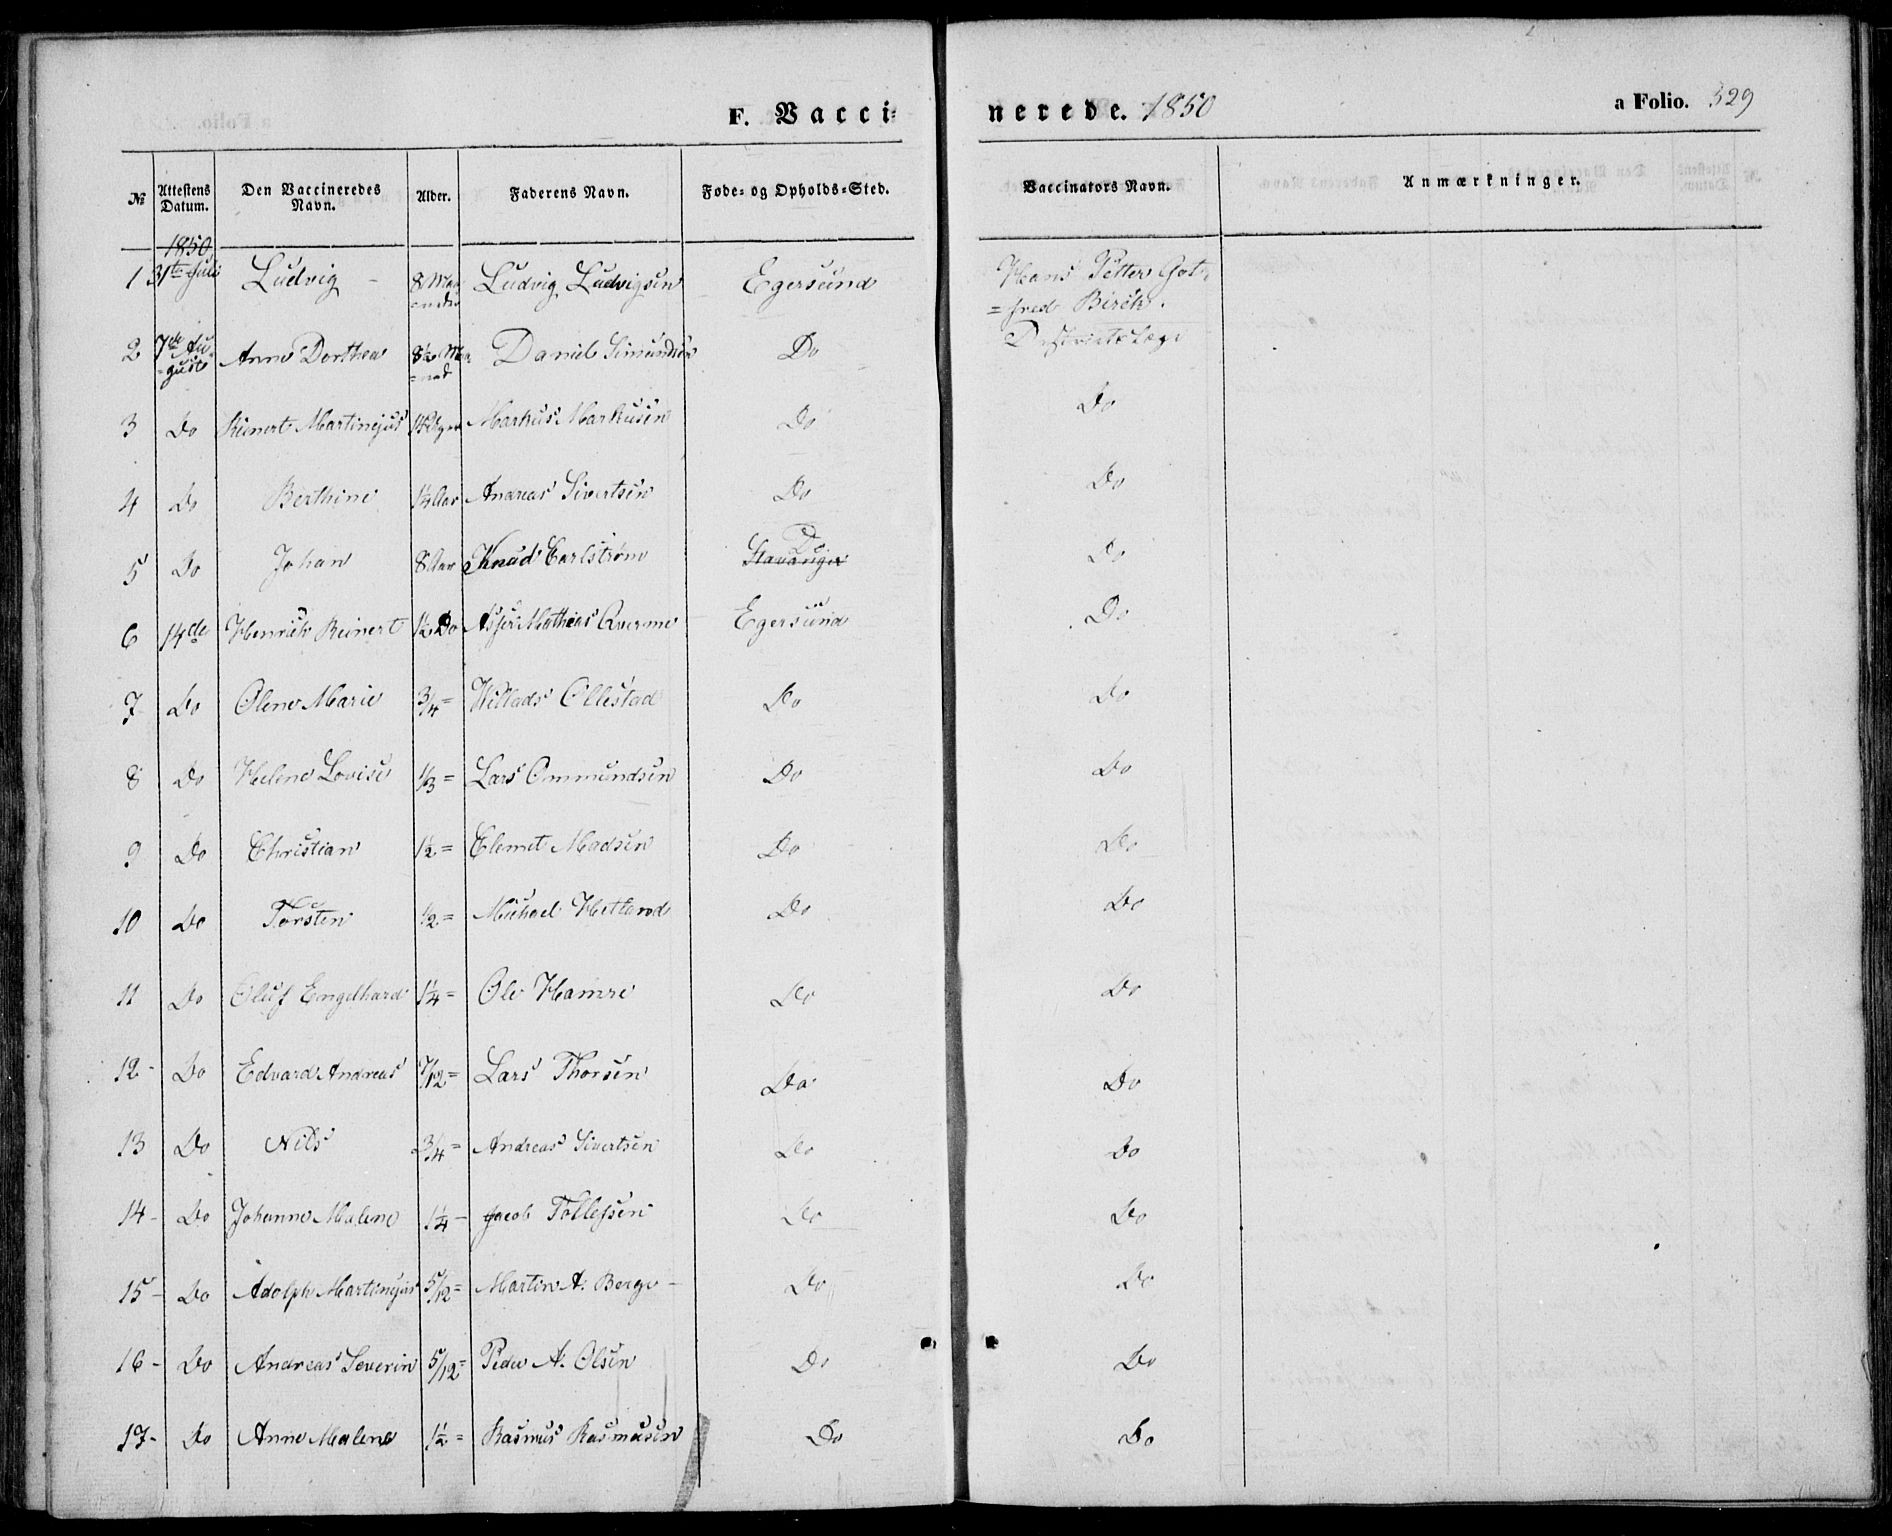 F. Vacci=
nerede. 1850
a Folio. 329
№ Attestens Datum. Den Vaccineredes Navn. Alder. Faderens Navn. Føde= og Opholds=Sted. Vaccinators Navn. Anmærkninger.
1850
1 31te Juli Ludvig 8 Maaneder Ludvig Ludvigsen Egersund Hans Petter Got=
=fred Birch.
Districts Læge
2 7de Au=gust Anne Dorthea 8½ Maa=ned Daniel Simundsen Do
3 Do Reinert Martinejus Markus Markusen Do Do
4 Do Berthine 1¼ Aar Andreas Sivertsen Do Do
5 Do Johan 8 Aar Knud Carlstrøm Stavanger Do Do
6 14de Henrich Reinert 1½ Do Asser Mathias Qverme Egersund Do
7 Do Olene Marie 3/4 = Willads Ollestad Do Do
8 Do Helene Lovise 1/3 = Lars Ommundsen Do Do
9 Do Christian 1½ = Clemet Madsen Do Do
10 Do Torsten 1/2 = Michael Hetland Do Do
11 Do Oluf Engelhard 1¼ = Ole Hamre Do Do
12 - Do Edvard Andreas 7/12 = Lars Thorsen Do Do
13 Do Nils 3/4 = Andreas Sivertsen Do Do
14 - Do Johanne Malene 1¼ - Jacob Tollefsen Do Do
15 - Do Adolph Martinejus 5/12 = Martin A. Berge - Do Do
16 - Do Andreas Severin 5/12 = Peder A. Olsen Do Do
17 - Do Anne Malene 1½ = Rasmus Rasmusen Do Do